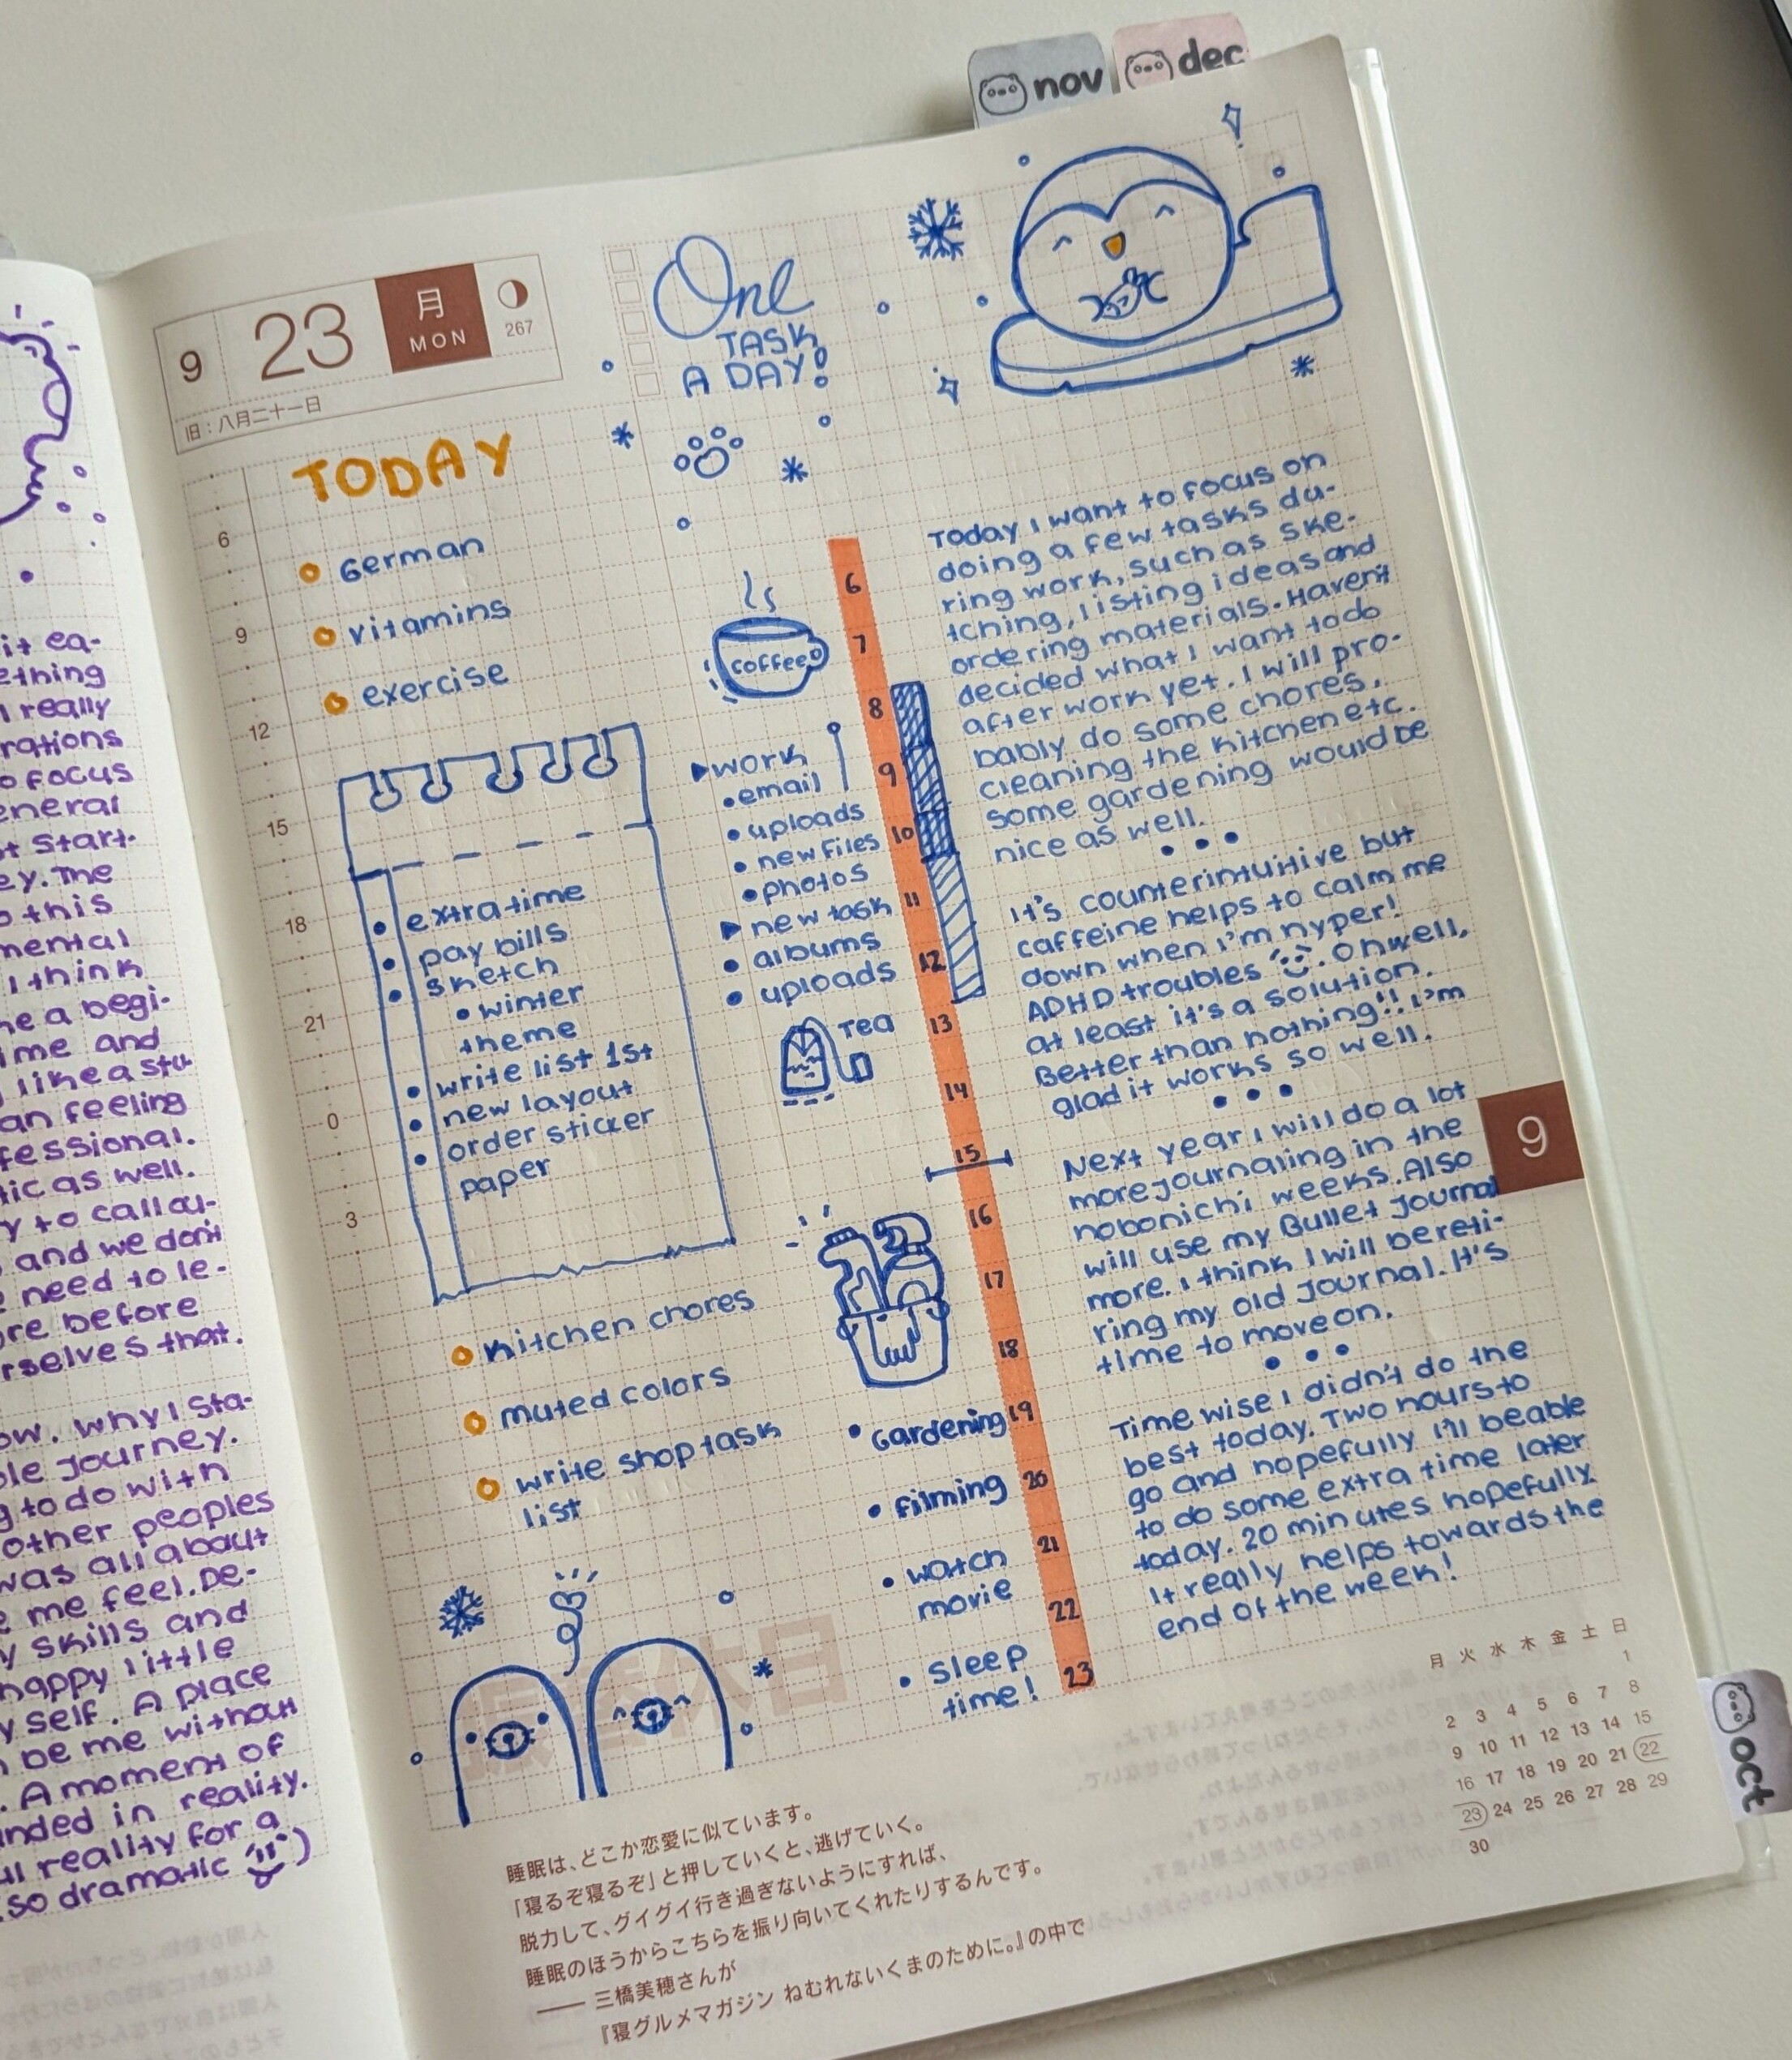 nov
dec
9
23
月
MON
267
旧：八月二十一日
One
TASK
A DAY!
TODAY
German
vitamins
exercise
6
9
12
15
18
21
0
3
extra time
pay bills
sketch
winter
theme
write list 1st
new layout
order sticker
paper
kitchen chores
muted colors
write shop task
list
coffee
work
email
uploads
new files
photos
new task
albums
uploads
Tea
Gardening
filming
watch
movie
sleep
time!
6
7
8
9
10
11
12
13
14
15
16
17
18
19
20
21
22
23
Today I want to focus on
doing a few tasks du-
ring work, such as ske-
tching, listing ideas and
ordering materials. Haven't
decided what I want to do
after work yet. I will pro-
bably do some chores,
cleaning the kitchen etc.
some gardening would be
nice as well.
It's counterintuitive but
caffeine helps to calm me
down when I'm hyper!
ADHD troubles. Oh well,
at least it's a solution.
Better than nothing!! I'm
glad it works so well.
Next year I will do a lot
more journaling in the
hobonichi weeks. Also
will use my Bullet Journal
more. I think I will bereti-
ring my old journal. It's
time to move on.
Time wise I didn't do the
best today. Two hours to
go and hopefully I'll be able
to do some extra time later
today. 20 minutes hopefully.
It really helps towards the
end of the week!
9
oct
月 火 水 木 金 土 日
1
2 3 4 5 6 7 8
9 10 11 12 13 14 15
16 17 18 19 20 21 22
23 24 25 26 27 28 29
30
睡眠は、どこか恋愛に似ています。
「寝るぞ寝るぞ」と押していくと、逃げていく。
脱力して、グイグイ行き過ぎないようにすれば、
睡眠のほうからこちらを振り向いてくれたりするんです。
—— 三橋美穂さんが
『寝グルメマガジン ねむれないくまのために。』の中で
it ea-
ething
I really
rations
o focus
eneral
t start-
ey. The
o this
mental
I think
me a begi-
ime and
like a stu-
an feeling
fessional.
tic as well.
y to call ou-
and we don't
need to le-
ore before
rselves that.
ow. Why I sta-
ble journey.
g to do with
other peoples
was all about
e me feel. De-
y skills and
happy little
yself. A place
n be me without
. A moment of
nded in reality.
ll reality for a
so dramatic )